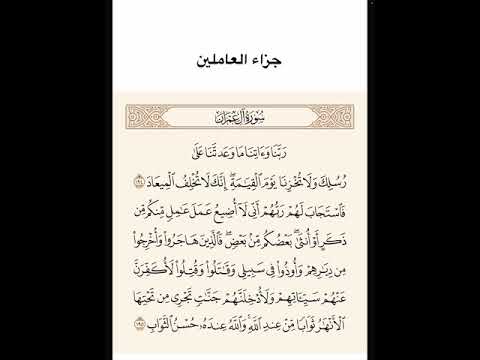 جزاء العاملين
سُورَةُ آلِ عِمْرَانَ
رَبَّنَا وَءَاتِنَا مَا وَعَدتَّنَا عَلَىٰ
رُسُلِكَ وَلَا تُخْزِنَا يَوْمَ الْقِيَٰمَةِ ۗ إِنَّكَ لَا تُخْلِفُ الْمِيعَادَ ١٩٤
فَاسْتَجَابَ لَهُمْ رَبُّهُمْ أَنِّي لَا أُضِيعُ عَمَلَ عَٰمِلٍ مِّنكُم مِّن
ذَكَرٍ أَوْ أُنثَىٰ ۖ بَعْضُكُم مِّنۢ بَعْضٍ ۖ فَالَّذِينَ هَاجَرُوا۟ وَأُخْرِجُوا۟
مِن دِيَٰرِهِمْ وَأُوذُوا۟ فِي سَبِيلِي وَقَٰتَلُوا۟ وَقُتِلُوا۟ لَأُكَفِّرَنَّ
عَنْهُمْ سَيِّـَٔاتِهِمْ وَلَأُدْخِلَنَّهُمْ جَنَّٰتٍ تَجْرِي مِن تَحْتِهَا
الْأَنْهَٰرُ ثَوَابًا مِّنْ عِندِ اللَّهِ ۗ وَاللَّهُ عِندَهُۥ حُسْنُ الثَّوَابِ ١٩٥